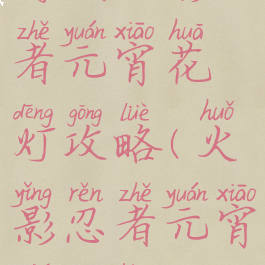 zhě yuán xiāo huā
者元宵花
dēng gōng lüè huǒ
灯攻略(火
yǐng rěn zhě yuán xiāo
影忍者元宵